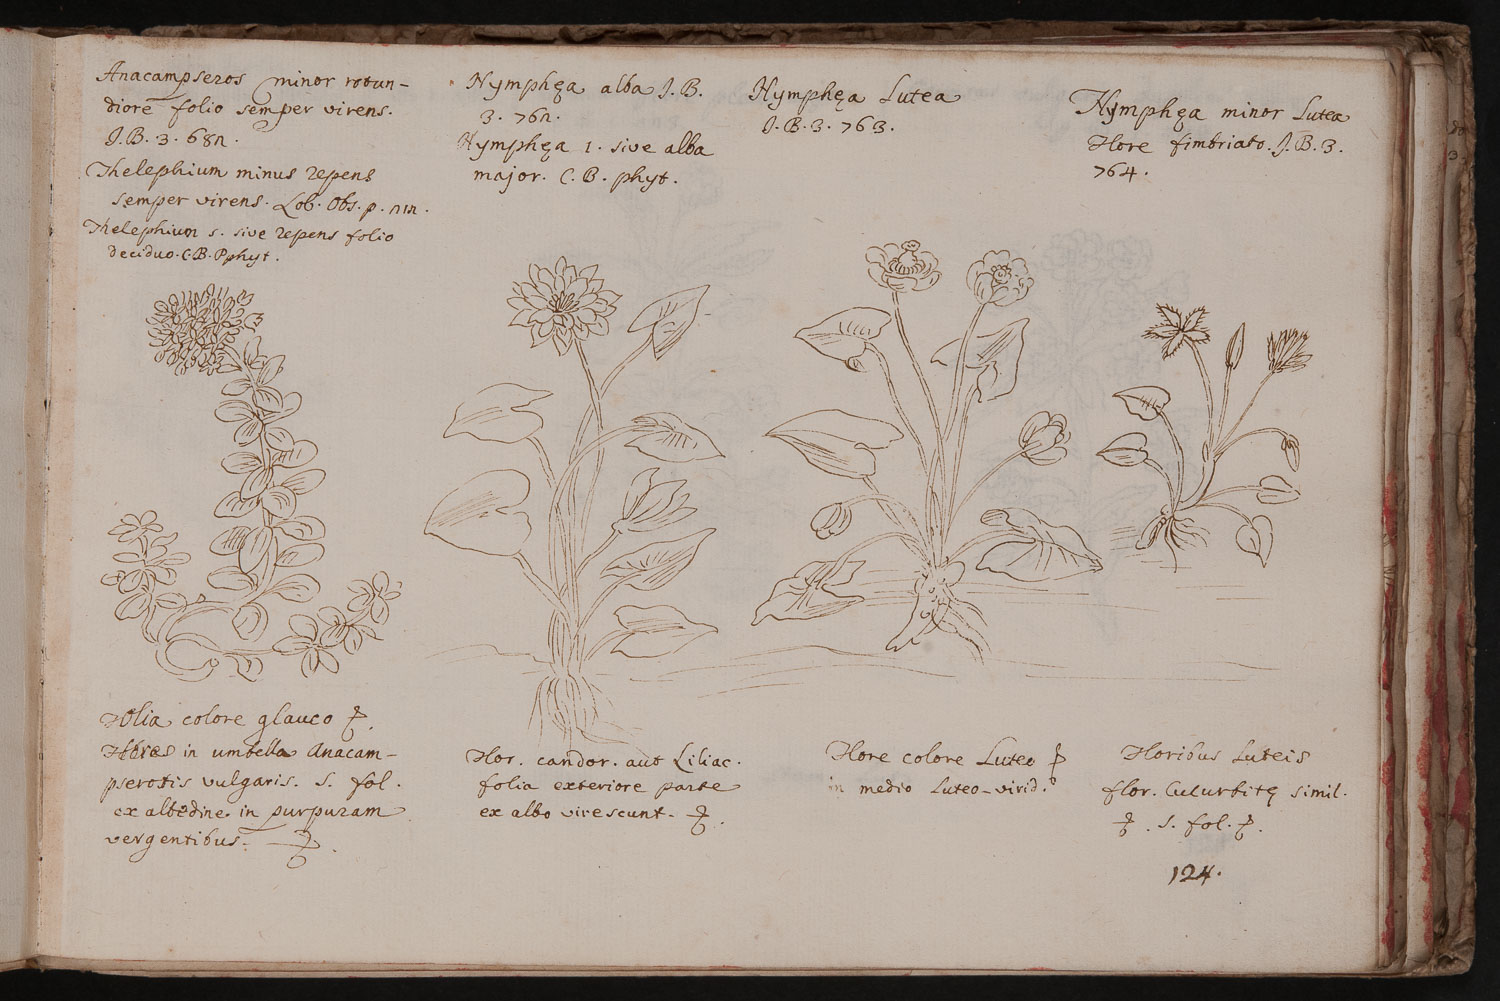 Anacampseros minor rotun-
diore folio semper virens.
J.B. 3. 682.
Thelephium minus repens
semper virens. Lob. Obs. p.
Thelephium s. sive repens folio
deciduo. C.B. Pphyt.
Nymphęa alba J.B.
3. 762.
Nymphęa 1. sive alba
major. C.B. phyt.
Nymphęa Lutea
J.B. 3. 763.
Nymphęa minor Lutea
Flore fimbriato. J.B. 3.
764.
Folia colore glauco
Flores in umbella Anacam-
pserotis vulgaris. s. fol.
ex albedine in purpuram
vergentibus.
Flor. candor. aut Liliac.
folia exteriore parte
ex albo virescunt.
Flore colore Luteo
in medio Luteo-virid.
Floribus Luteis
flor. Cucurbitę simil.
s. fol.
124.